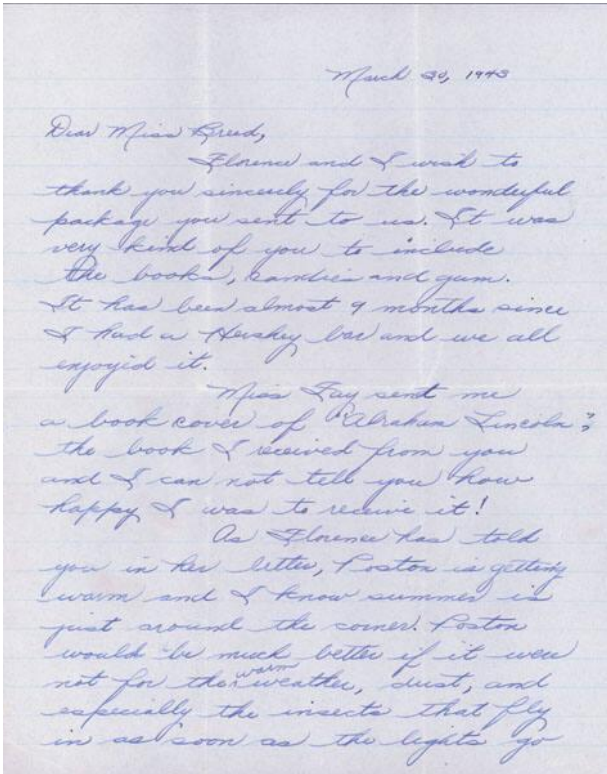 March 20, 1943
Dear Miss Breed,
Florence and I wish to
thank you sincerely for the wonderful
package you sent to us. It was
very kind of you to include
the books, candies and gum.
It has been almost 9 months since
I had a Hershey bar and we all
enjoyid it.
Miss Fay sent me
a book cover of "Abraham Lincoln";
the book I received from you
and I can not tell you how
happy I was to receive it!
As Florence has told
you in her letter, Poston is getting
warm and I know summer is
just around the corner. Poston
would be much better if it were
not for the warm weather, dust, and
especially the insects that fly
in as soon as the lights go